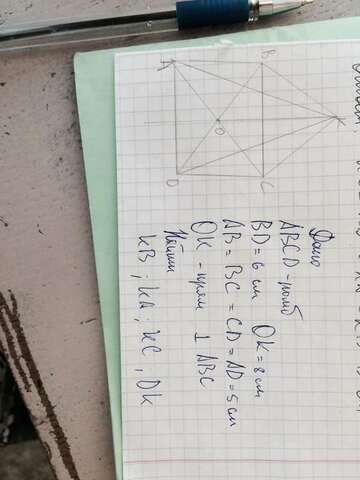 A
B
K
O
D
C
Дано
ABCD - ромб
BD = 6 см OK = 8 см
AB = BC = CD = AD = 5 см
OK - прям ⊥ ABC
Найти
KB; KA; KC, DK